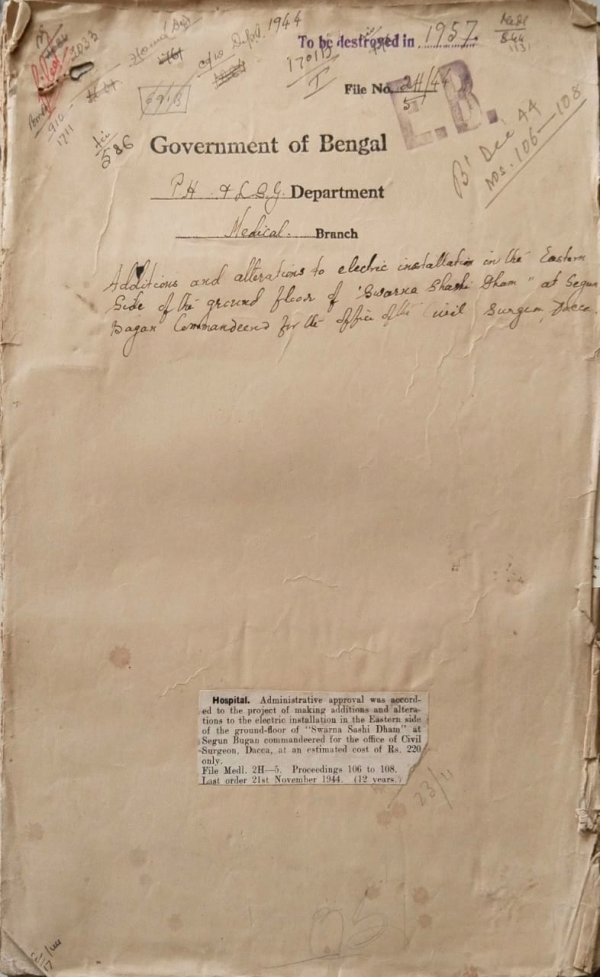 1944
To be destroyed in 1957
Medl
File No. 2H/
5
E.B.
B' Dec' 44
Nos. 106—108
586
Government of Bengal
P.H. & L.S.G. Department
Medical. Branch
Additions and alterations to electric installation in the Eastern
Side of the ground floor of "Swarna Shashi Dham" at Segun
Bagan Commandeered for the office of the Civil Surgeon, Dacca.
Hospital. Administrative approval was accord-
ed to the project of making additions and altera-
tions to the electric installation in the Eastern side
of the ground-floor of "Swarna Sashi Dham" at
Segun Bugan commandeered for the office of Civil
Surgeon, Dacca, at an estimated cost of Rs. 220
only.
File Medl. 2H—5. Proceedings 106 to 108.
Last order 21st November 1944. (12 years.)
23/11